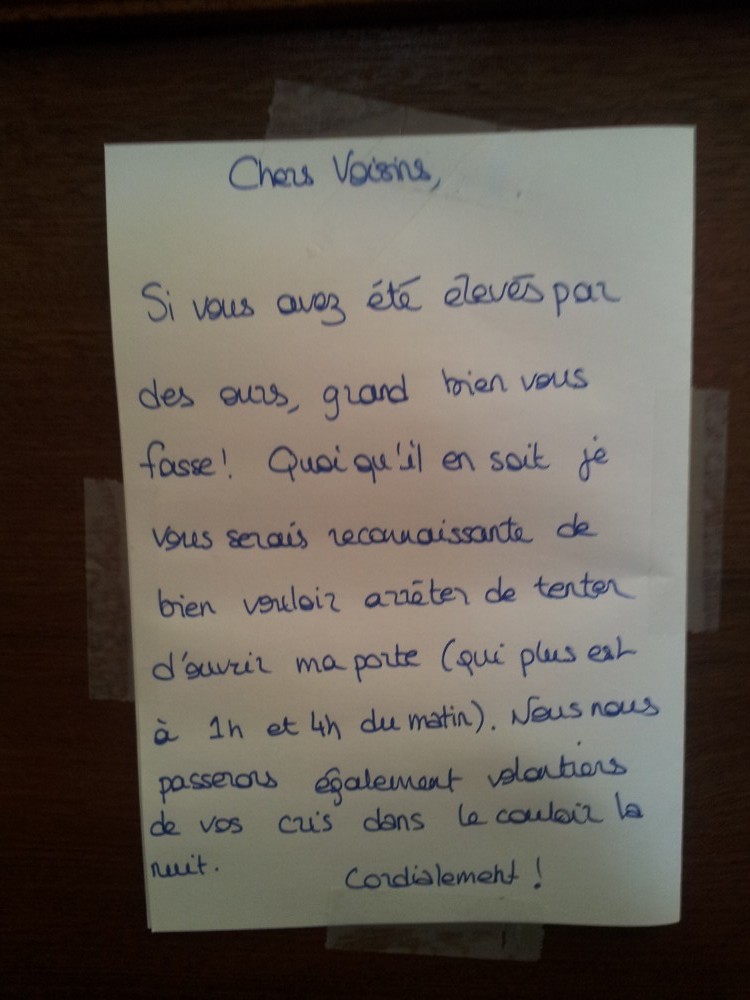 Chers Voisins,
Si vous avez été élevés par
des ours, grand bien vous
fasse! Quoi qu'il en soit je
vous serais reconnaissante de
bien vouloir arrêter de tenter
d'ouvrir ma porte (qui plus est
à 1h et 4h du matin). Nous nous
passerons également volontiers
de vos cris dans le couloir la
nuit. Cordialement !